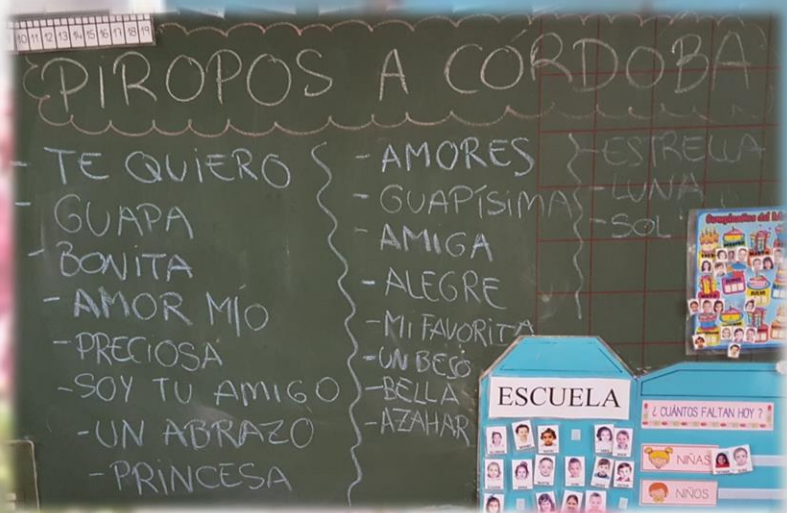 10 11 12 13 14 15 16 17 18 19
PIROPOS A CÓRDOBA
- TE QUIERO
- GUAPA
- BONITA
- AMOR MÍO
- PRECIOSA
- SOY TU AMIGO
- UN ABRAZO
- PRINCESA
- AMORES
- GUAPÍSIMA
- AMIGA
- ALEGRE
- MI FAVORITA
- UN BESO
- BELLA
- AZAHAR
- ESTRELLA
- LUNA
- SOL
ESCUELA
¿ CUÁNTOS FALTAN HOY ?
NIÑAS
NIÑOS